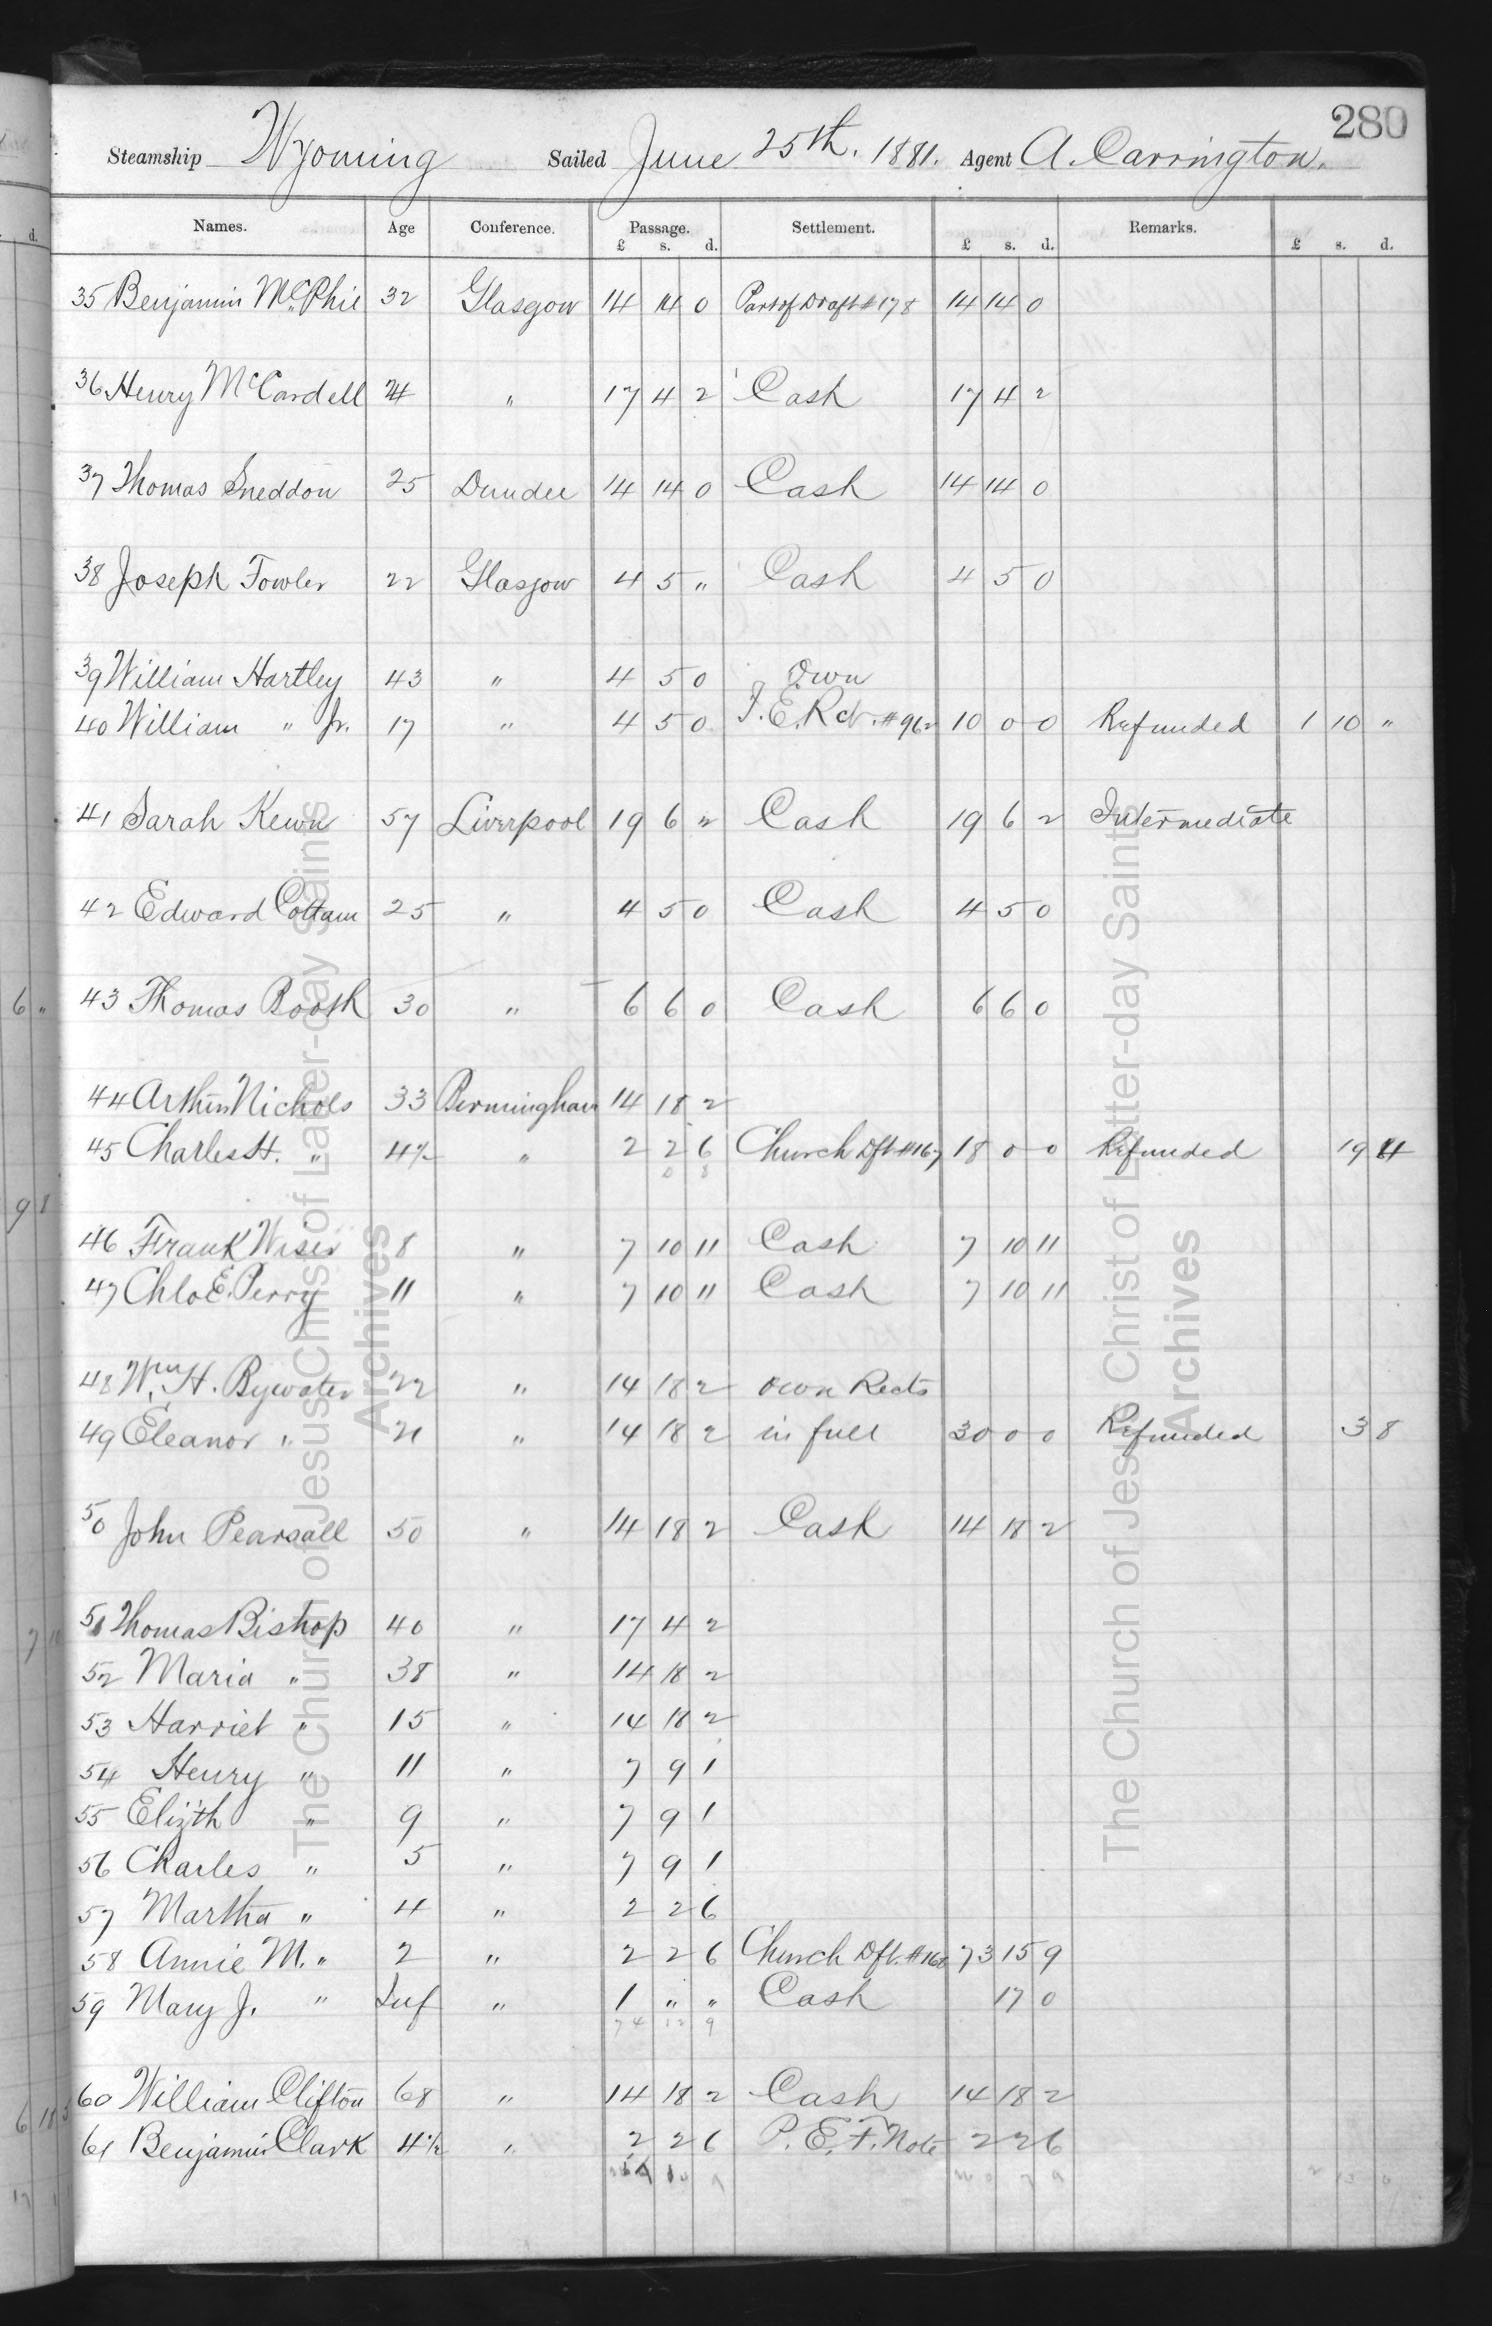 280
Steamship Wyoming Sailed June 25th. 1881. Agent A. Carrington.
Names. Age Conference. Passage. Settlement. Remarks.
£ s. d. £ s. d. £ s. d.
35 Benjamin McPhie 32 Glasgow 14 14 0 Part of Draft #178 14 14 0
36 Henry McCardell 24 " 17 4 2 Cash 17 4 2
37 Thomas Sneddon 25 Dundee 14 14 0 Cash 14 14 0
38 Joseph Fowler 22 Glasgow 4 5 " Cash 4 5 0
39 William Hartley 43 " 4 5 0 Own
40 William " Jr. 17 " 4 5 0 I.E. Rct. #962 10 0 0 Refunded 1 10 "
41 Sarah Kewn 57 Liverpool 19 6 2 Cash 19 6 2 Intermediate
42 Edward Cottam 25 " 4 5 0 Cash 4 5 0
43 Thomas Booth 30 " 6 6 0 Cash 6 6 0
44 Arthur Nichols 33 Birmingham 14 18 2
45 Charles H. " 4½ " 2 2 6 Church Dft #167 18 0 0 Refunded 19 4
0 8
46 Frank Wiser 8 " 7 10 11 Cash 7 10 11
47 Chlo E. Perry 11 " 7 10 11 Cash 7 10 11
48 Wm. H. Bywater 22 " 14 18 2 own Rects
49 Eleanor " 21 " 14 18 2 in full 30 0 0 Refunded 3 8
50 John Pearsall 50 " 14 18 2 Cash 14 18 2
51 Thomas Bishop 40 " 17 4 2
52 Maria " 38 " 14 18 2
53 Harriet " 15 " 14 18 2
54 Henry " 11 " 7 9 1
55 Elizth " 9 " 7 9 1
56 Charles " 5 " 7 9 1
57 Martha " 4 " 2 2 6
58 Annie M. " 2 " 2 2 6 Church Dft. #168 73 15 9
59 Mary J. " Inf " 1 " " Cash 17 0
74 12 9
60 William Clifton 68 " 14 18 2 Cash 14 18 2
61 Benjamin Clark 4½ " 2 2 6 P. E. F. Note 2 2 6
The Church of Jesus Christ of Latter-day Saints
Archives
The Church of Jesus Christ of Latter-day Saints
Archives